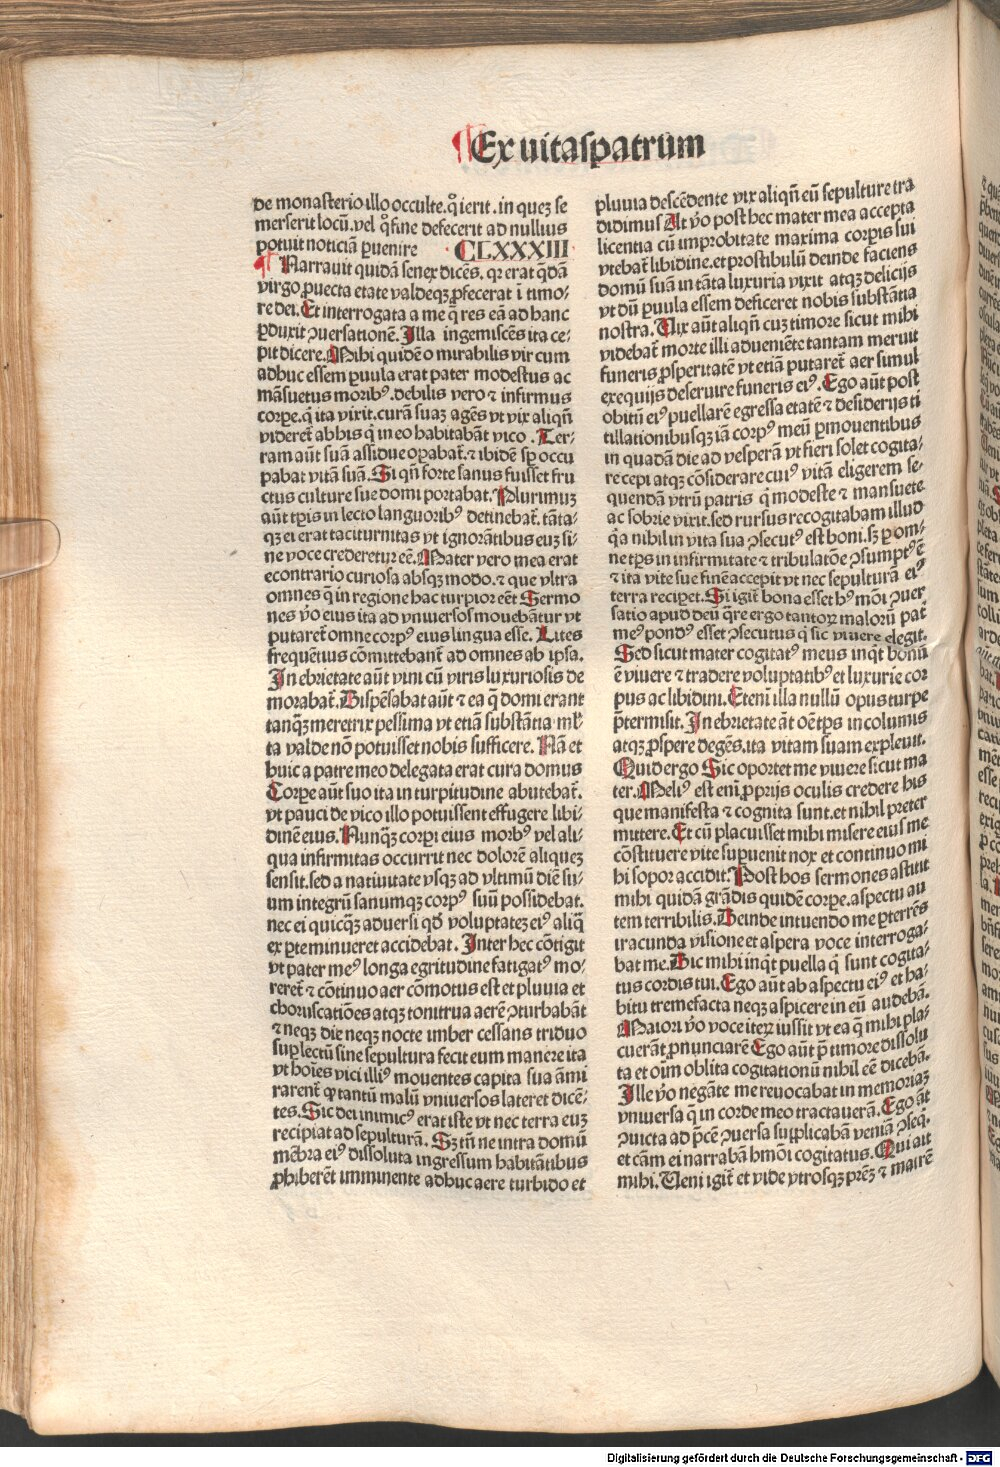 Ex vitaspatrum
de monasterio illo occulte. q̊ ierit. in quez se
merserit locū. vel q̊ fine defecerit ad nullius
potuit noticiā ꝑuenire CLXXXIII
¶ Narrauit quidā senex dicēs. qꝛ erat q̄dā
virgo ꝓuecta etate valdeqꝫ ꝓfecerat ī timo/
re dei. Et interrogata a me q̄ res eā ad hanc
ꝑduxit ꝯuersationē. Illa ingemiscēs ita ce/
pit dicere. Mihi quidē o mirabilis vir cum
adhuc essem ꝑuula erat pater modestus ac
māsuetus moribꝰ. debilis vero ⁊ infirmus
corꝑe. q̄ ita vixit. curā suaꝫ agēs vt vix aliqn̄
videret̄ ab his q̄ in eo habitabāt vico. Ter/
ram aūt suā assidue oꝑabat̄. ⁊ ibidē sꝑ occu
pabat vitā suā. Si qn̄ forte sanus fuisset fru
ctus culture sue domi portabat. Plurimuꝫ
aūt tꝑis in lecto languoribꝰ detinebat̄. tāta/
qꝫ ei erat taciturnitas vt ignorātibus euꝫ si/
ne voce crederetur eē. Mater vero mea erat
econtrario curiosa absqꝫ modo. ⁊ que vltra
omnes q̄ in regione hac turpior eēt Sermo
nes v̄o eius ita ad vniuersos mouebātur vt
putaret̄ omne corpꝰ eius lingua esse. Lites
frequētius cōmittebant̄ ad omnes ab ipsa.
In ebrietate aūt vini cū viris luxuriosis de
morabat̄. Dispēsabat aūt ⁊ ea q̄ domi erant
tanqꝫ meretrix pessima vt etiā substātia ml̄
ta valde nō potuisset nobis sufficere. Nā et
huic a patre meo delegata erat cura domus
Corꝑe aūt suo ita in turpitudine abutebat̄.
vt pauci de vico illo potuissent effugere libi/
dinē eius. Nunqꝫ corꝑi eius morbꝰ vel ali/
qua infirmitas occurrit nec dolorē aliqueꝫ
sensit. sed a natiuitate vsqꝫ ad vltimū diē su/
um integrū sanumqꝫ corpꝰ suū possidebat.
nec ei quicqꝫ aduersi qd̄ voluptateꝫ eiꝰ aliq̄
ex ꝑte minueret accidebat. Inter hec cōtigit
vt pater meꝰ longa egritudine fatigatꝰ mo/
reret̄ ⁊ cōtinuo aer cōmotus est et pluuia et
choruscatiōes atqꝫ tonitrua aerē ꝯturbabāt
⁊ neqꝫ die neqꝫ nocte imber cessans triduo
suꝑ lectū sine sepultura fecit eum manere ita
vt hoīes vici illiꝰ mouentes capita sua āmi
rarent̄ ꝙ tantū malū vniuersos lateret dicē/
tes. Sic dei inimicꝰ erat iste vt nec terra euꝫ
recipiat ad sepulturā. Sꝫ tn̄ ne intra domū
mēbra eiꝰ dissoluta ingressum habitātibus
ꝓhiberēt imminente adhuc aere turbido et
pluuia descēdente vix aliqn̄ eū sepulture tra
didimus At v̄o post hec mater mea accepta
licentia cū improbitate maxima corꝑis sui
vtebat̄ libidine. et prostibulū deinde faciens
domū suā in tāta luxuria vixit atqꝫ delicijs
vt dū ꝑuula essem deficeret nobis substātia
nostra. Vix aūt aliqn̄ cuꝫ timore sicut mihi
videbat̄ morte illi adueniēte tantam meruit
funeris ꝓsperitatē vt etiā putaret̄ aer simul
exequijs deseruire funeris eiꝰ. Ego aūt post
obitū eiꝰ puellarē egressa etatē ⁊ desiderijs ti
tillationibusqꝫ iā corpꝰ meū ꝑmouentibus
in quadā die ad vesperā vt fieri solet cogita/
re cepi atqꝫ cōsiderare cuiꝰ vitā eligerem se/
quendā vtrū patris q̄ modeste ⁊ mansuete
ac sobrie vixit. sed rursus recogitabam illud
q̄a nihil in vita sua ꝯsecutꝰ est boni. sꝫ ꝑ om/
ne tꝑs in infirmitate ⁊ tribulatōe ꝯsumptꝰ ē
⁊ ita vite sue finē accepit vt nec sepulturā eiꝰ
terra recipet. Si igit̄ bona esset hꝰ mōi ꝯuer
satio apud deū q̄re ergo tantoꝝ maloꝝ pat̄
meꝰ pondꝰ esset ꝯsecutus q̄ sic viuere elegit.
Sed sicut mater cogitatꝰ meus inqt̄ bonū
ē viuere ⁊ tradere voluptatibꝰ et luxurie cor
pus ac libidini. Etenī illa nullū opus turpe
p̄termisit. In ebrietate āt oēs tꝑs incolumis
atqꝫ ꝓspere degēs. ita vitam suam expleuit.
Quid ergo Sic oportet me viuere sicut ma
ter. Meliꝰ est enī ꝓprijs oculis credere his
que manifesta ⁊ cognita sunt. et nihil preter
mittere. Et cū placuisset mihi misere eius me
cōstituere vite suꝑuenit nox et continuo mi
hi sopor accidit. Post hos sermones astitit
mihi quidā grādis quidē corꝑe. aspectu au
tem terribilis. Deinde intuendo me ꝑterrēs
iracunda visione et aspera voce interroga/
bat me. Dic mihi inqt̄ puella q̄ sunt cogita/
tus cordis tui. Ego aūt ab aspectu eiꝰ et ha/
bitu tremefacta neqꝫ aspicere in eū audebā.
Maiori v̄o voce iteꝝ iussit vt ea q̄ mihi pla/
cuerāt ꝓnunciarē Ego aūt p̄ timore dissolu
ta et oīm oblita cogitationū nihil eē dicebā.
Ille v̄o negāte me reuocabat in memoriaꝫ
vniuersa q̄ in corde meo tractauerā. Ego āt
ꝯuicta ad p̄cē ꝯuersa supplicabā veniā ꝯseq̄.
et cām ei narrabā hmōi cogitatus. Qui ait
mihi. Veni igit̄ et vide vtrosqꝫ prēꝫ ⁊ matrē